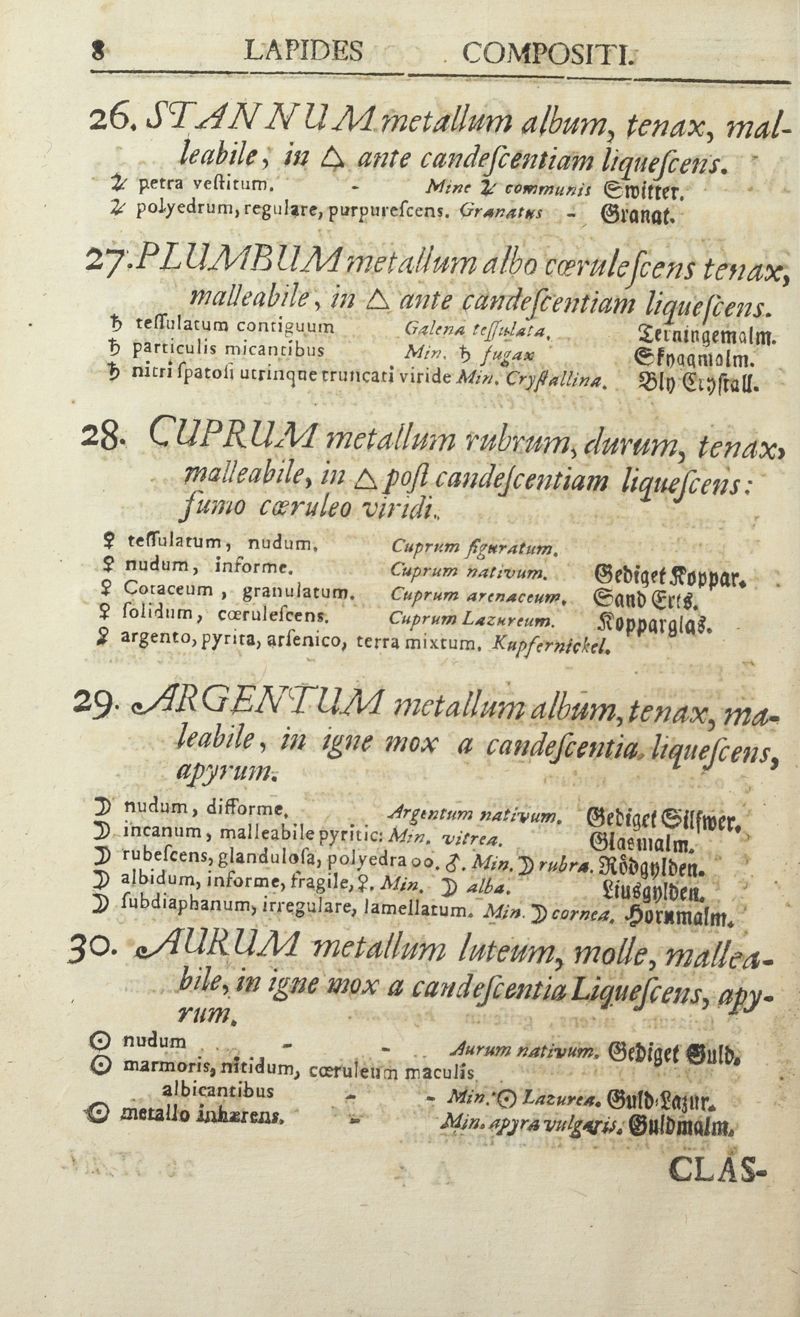 8 LAPIDES COMPOSITI.
26. STANNUM metallum album, tenax, mal-
leabile, in 🜂 ante candeſcentiam liqueſcens.
♃ petra veſtitum. - Mine ♃ communis Switter.
♃ polyedrum, regulare, purpureſcens. Granatus - Granat.
27. PLUMBUM metallum albo cœruleſcens tenax,
malleabile, in 🜂 ante candeſcentiam liqueſcens.
♄ teſſulatum contiguum Galena teſſulata, Terningemalm.
♄ particulis micantibus Min. ♄ fugax
♄ nitri ſpatoſi utrinque truncati viride Min. Cryſtallina. Bly Cryſtall.
28. CUPRUM metallum rubrum, durum, tenax,
malleabile, in 🜂 poſt candeſcentiam liqueſcens:
fumo cœruleo viridi.
♀ teſſulatum, nudum, Cuprum figuratum.
♀ nudum, informe. Cuprum nativum. Gediget Koppar.
♀ Cotaceum, granulatum. Cuprum arenaceum. Sand Ertz.
♀ ſolidum, cœruleſcens. Cuprum Lazureum. Kopparglas.
♀ argento, pyrita, arſenico, terra mixtum. Kupfernickel.
29. ARGENTUM metallum album, tenax, ma-
leabile, in igne mox a candeſcentia liqueſcens,
apyrum.
☽ nudum, difforme. Argentum nativum. Gediget Silfwer.
☽ incanum, malleabile pyritic: Min. vitrea. Glasmalm.
☽ rubeſcens, glanduloſa, polyedra oo. ♂. Min. ☽ rubra. Rödgylden.
☽ albidum, informe, fragile, ♀. Min. ☽ alba. Liusgylden.
☽ ſubdiaphanum, irregulare, lamellatum. Min. ☽ cornea. Hornmalm.
30. AURUM metallum luteum, molle, mallea-
bile, in igne mox a candeſcentia Liqueſcens, apy-
rum.
☉ nudum - - Aurum nativum. Gediget Guld.
☉ marmoris, nitidum, cœruleum maculis
albicantibus - - Min. ☉ Lazurea. Guld-Lazur.
☉ metallo inhærens. - Min. apyra vulgaris. Guldmalm.
CLAS-